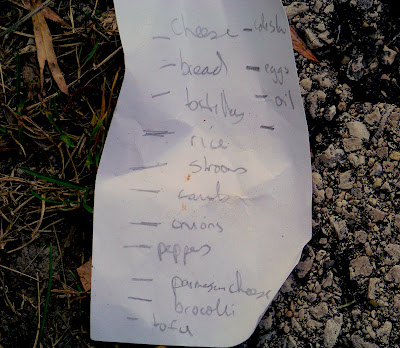 - cheese
- bread
- tortillas
- rice
- shrooms
- carrots
- onions
- peppers
- parmesan cheese
- brocolli
- tofu
- eggs
- oil
-